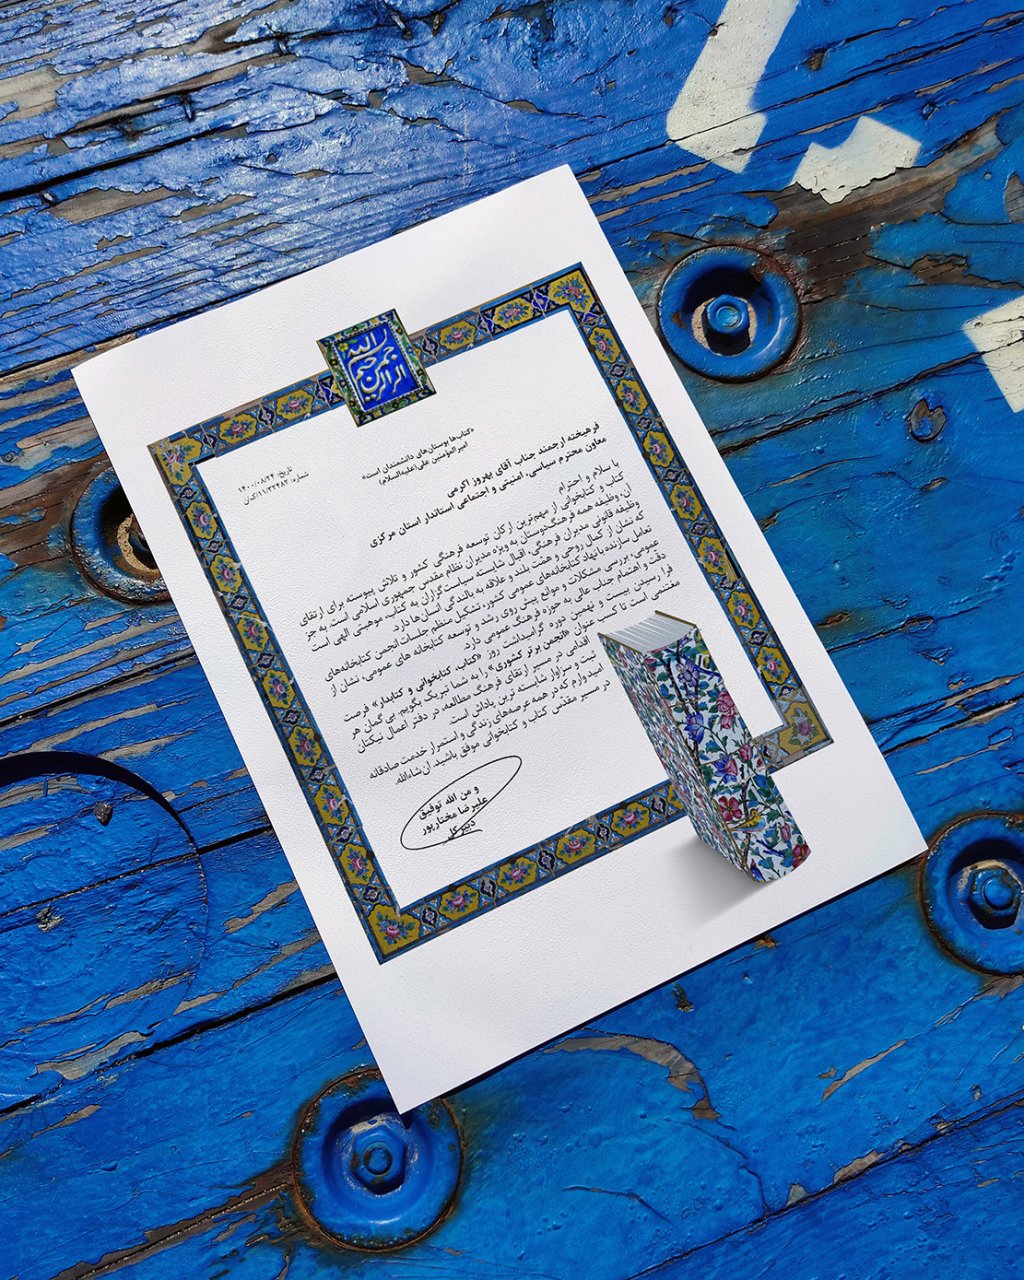 بسم الله الرحمن الرحیم
«کتاب‌ها بوستان‌های دانشمندان است»
امیرالمؤمنین علی (علیه‌السلام)
تاریخ: ۱۴۰۰/۰۸/۲۴
شماره: ۱۱/۳۲۴۸۲/کان
فرهیخته ارجمند جناب آقای بهروز اکرمی
معاون محترم سیاسی، امنیتی و اجتماعی استاندار استان مرکزی
با سلام و احترام
کتاب و کتابخوانی از مهم‌ترین ارکان توسعه فرهنگی کشور و تلاش پیوسته برای ارتقای
آن، وظیفه همه فرهنگ‌دوستان به ویژه مدیران نظام مقدس جمهوری اسلامی است. به جز
وظیفه قانونی مدیران فرهنگی، اقبال شایسته سیاست‌گزاران به کتاب، موهبتی الهی است
که نشان از کمال روحی و همّت بلند و علاقه به بالندگی انسان‌ها دارد.
تعامل سازنده با نهاد کتابخانه‌های عمومی کشور، تشکیل منظم جلسات انجمن کتابخانه‌های
عمومی، بررسی مشکلات و موانع پیش روی رشد و توسعه کتابخانه های عمومی، نشان از
دقّت و اهتمام جناب عالی به حوزه فرهنگ عمومی دارد.
فرا رسیدن بیست و نهمین دوره گرامیداشت روز «کتاب، کتابخوانی و کتابدار» فرصت
مغتنمی است تا کسب عنوان «انجمن برتر کشوری» را به شما تبریک بگویم. بی گمان هر
اقدامی در مسیر ارتقای فرهنگ مطالعه، در دفتر اعمال نیکتان
ثبت و سزاوار شایسته ترین پاداش است.
امیدوارم که در همه عرصه‌های زندگی و استمرار خدمت صادقانه
در مسیر مقدّس کتاب و کتابخوانی موفق باشید. ان‌شاءالله.
و من الله توفیق
علیرضا مختارپور
دبیر کل